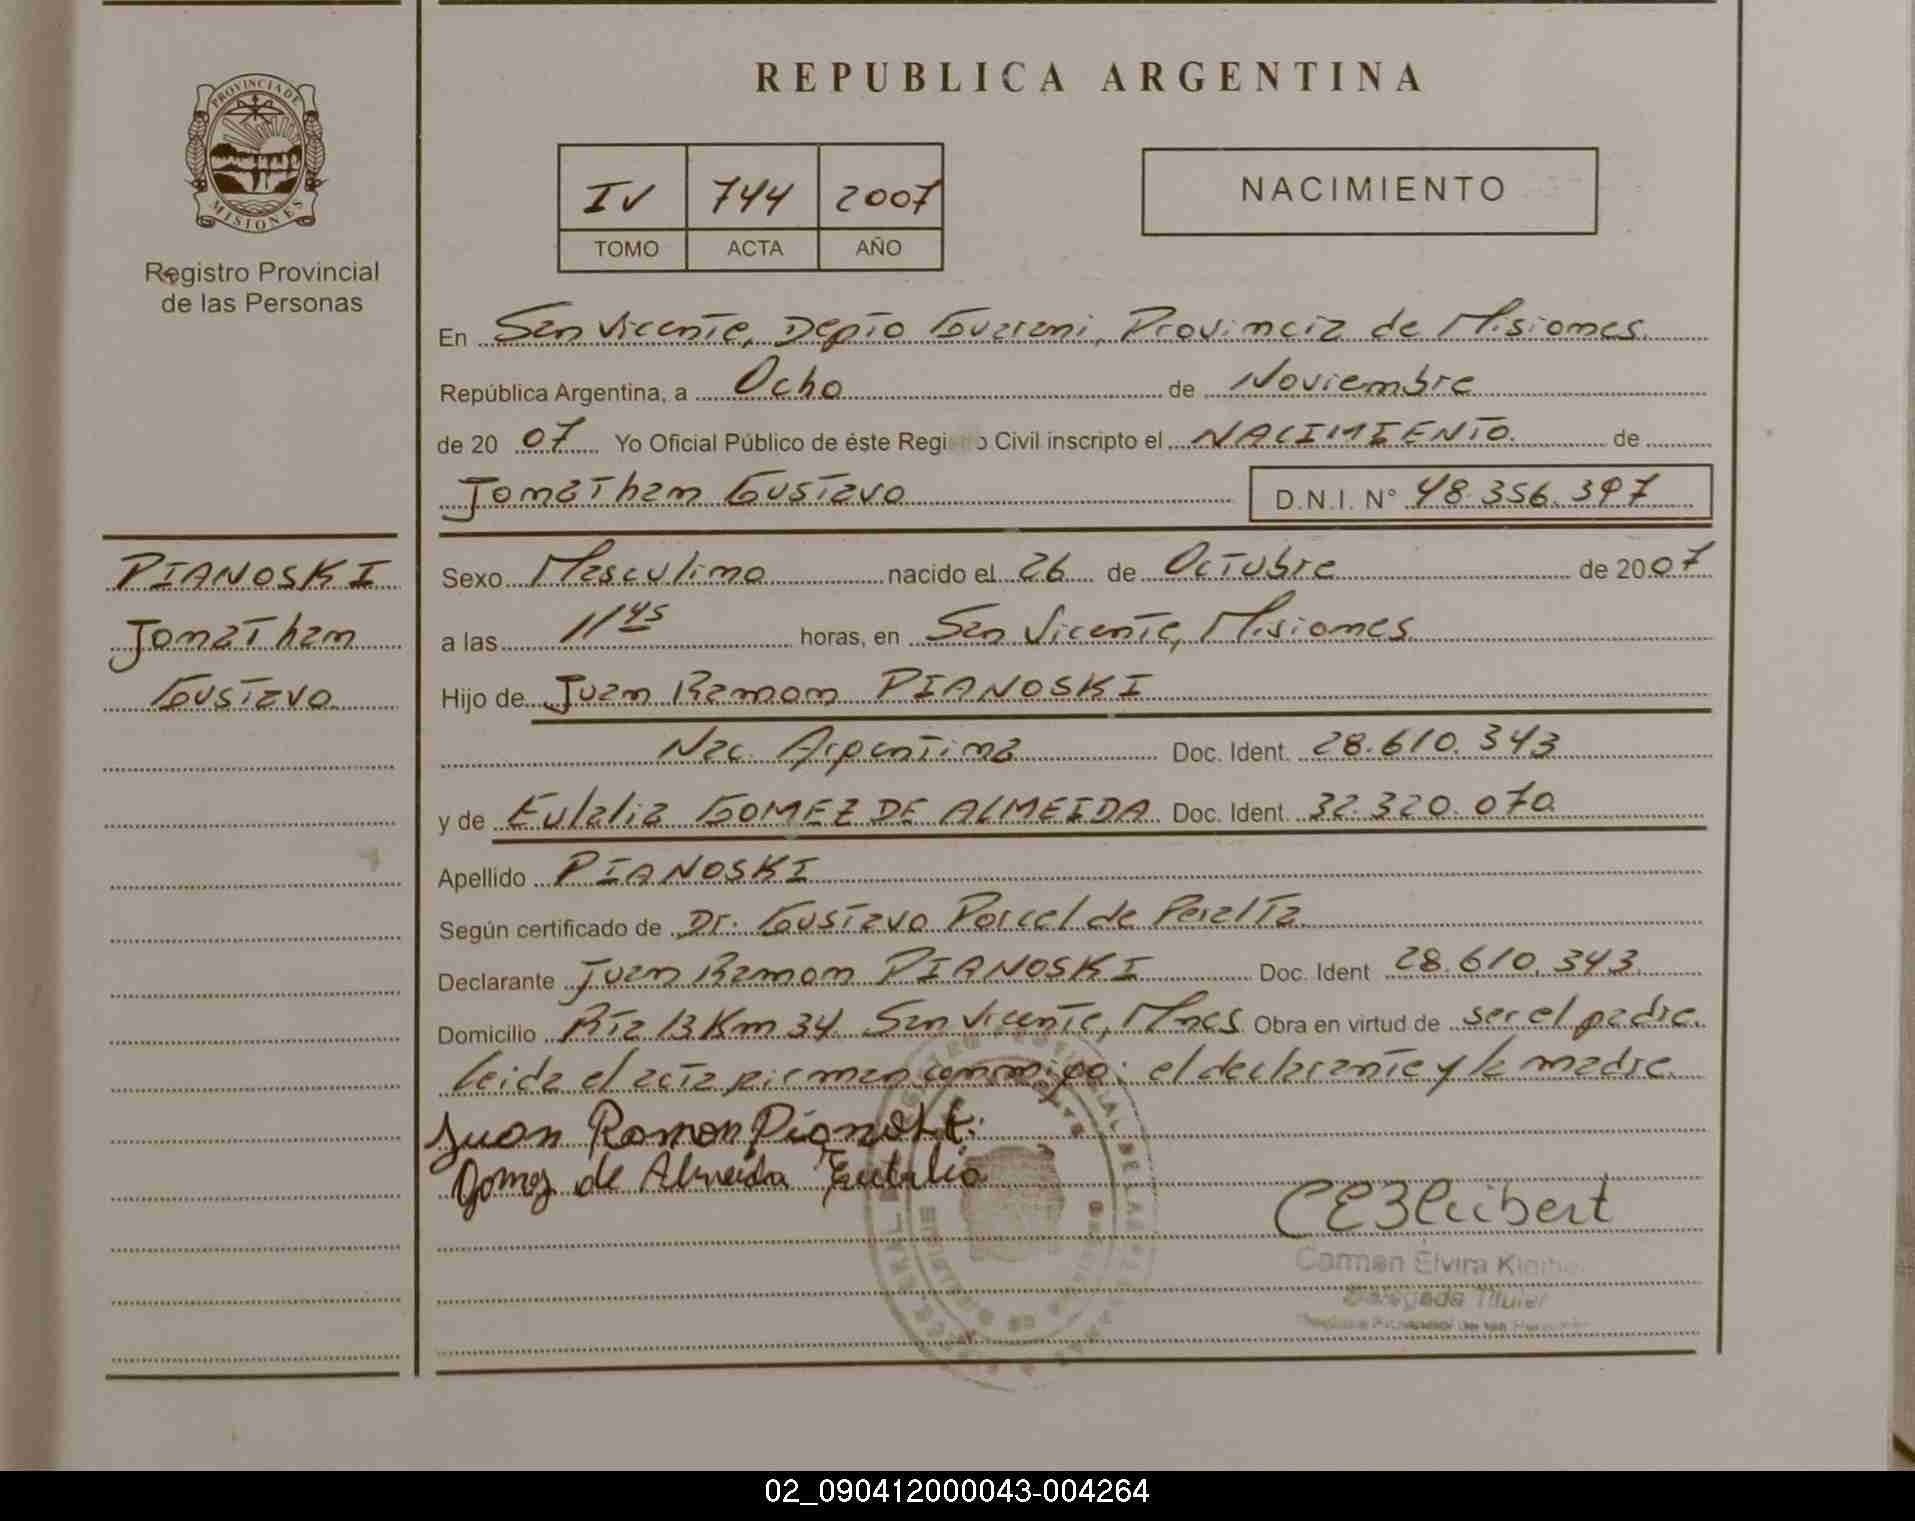 REPUBLICA ARGENTINA
PROVINCIA DE
MISIONES
Registro Provincial
de las Personas
IV 744 2007
TOMO ACTA AÑO
NACIMIENTO
En San Vicente, Depto Guarani, Provincia de Misiones
República Argentina, a Ocho de Noviembre
de 20 07 Yo Oficial Público de éste Registro Civil inscripto el NACIMIENTO de
Jonathan Gustavo D.N.I. N° 48.356.397
PIANOSKI
Jonathan
Gustavo
Sexo Masculino nacido el 26 de Octubre de 20 07
a las 11 45 horas, en San Vicente, Misiones
Hijo de Juan Ramon PIANOSKI
Nac. Argentina Doc. Ident. 28.610.343
y de Eulalia GOMEZ DE ALMEIDA Doc. Ident. 32.320.070
Apellido PIANOSKI
Según certificado de Dr. Gustavo Porcel de Peralta
Declarante Juan Ramon PIANOSKI Doc. Ident 28.610.343
Domicilio Rta 13 Km 34 San Vicente, Mnes Obra en virtud de ser el padre.
leida el acta firman conmigo: el declarante y la madre.
Juan Ramon Pianoski
Gomez de Almeida Eulalia
Carmen Elvira
Delegada Titular
Registro Provincial de las Personas
02_090412000043-004264